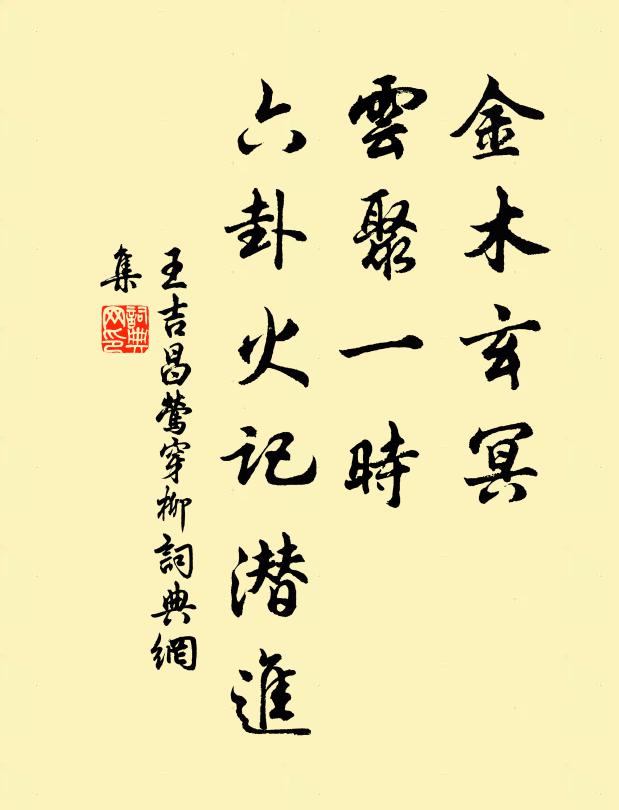 金木玄冥
雲聚一時
六卦火记潜進
王吉昌鶯穿柳詞典網
集
詞典
网印